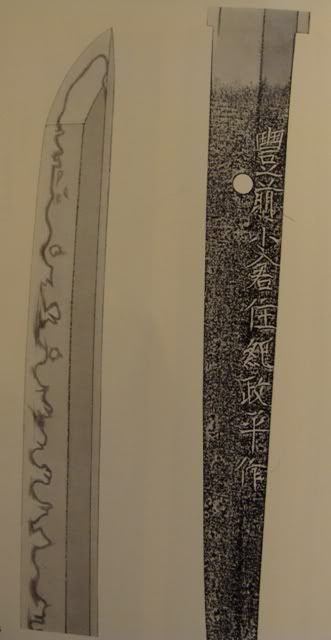 豐前小倉住紀政平作